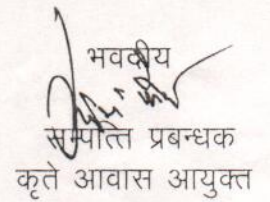 भवदीय
सम्पत्ति प्रबन्धक
कृते आवास आयुक्त